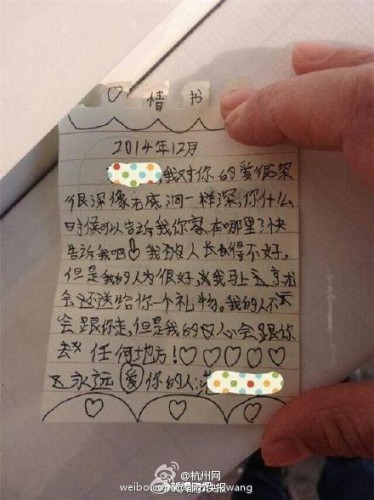 ♡ 情书
2014年12月
,我对你的爱很深
很深像无底洞一样深,你什么
时候可以告诉我你家在哪里?快
告诉我吧!我 人长 得不好,
但是我的人为很好, 我马上
会还送给你一个礼物。我的人不
会跟你走,但是我的 心会跟你
去 任何地方!♡♡♡♡♡
永远爱你的人:
♡ ♡ ♡
@杭州网